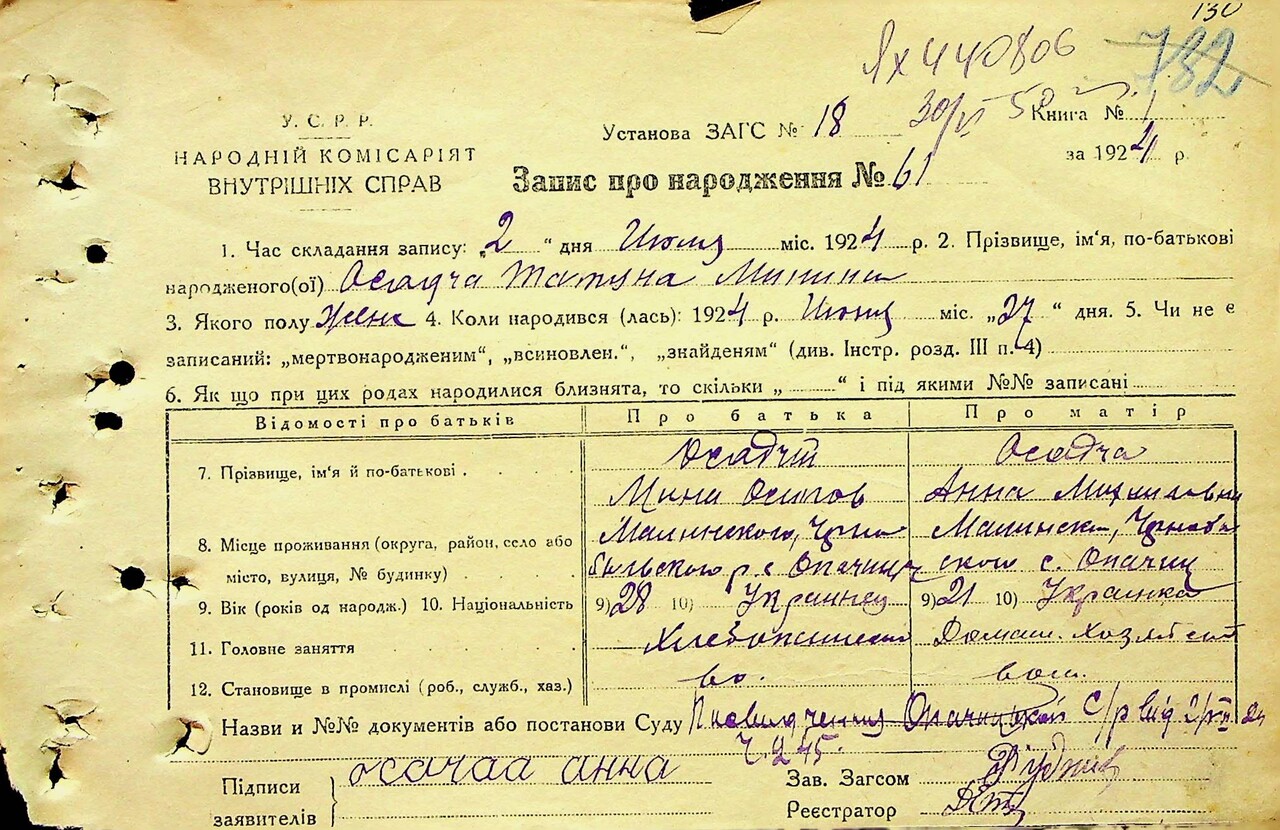 130
Ях 440806 782
У. С. Р. Р.
НАРОДНІЙ КОМІСАРІЯТ
ВНУТРІШНІХ СПРАВ
Установа ЗАГС № 18 30/VI 50 Книга № 1
за 1924 р.
Запис про народження № 61
1. Час складання запису: „2 “ дня Июля міс. 1924 р. 2. Прізвище, ім'я, по-батькові
народженого(ої) Осадча Татуна Минина
3. Якого полу Жен 4. Коли народився (лась): 1924 р. Июня міс. „27 “ дня. 5. Чи не є
записаний: „мертвонародженим“, „всиновлен.“, „знайденям“ (див. Інстр. розд. III п. 4)
6. Як що при цих родах народилися близнята, то скільки „ “ і під якими №№ записані
Відомості про батьків Про батька Про матір
7. Прізвище, ім'я й по-батькові Осадчий Осадча
Мина Осипов Анна Михайловна
8. Місце проживання (округа, район, село або Малинского, Черно Малинско, Чернобы
місто, вулиця, № будинку) быльского р с Опачиц ского с. Опачиц
9. Вік (років од народж.) 10. Національність 9) 28 10) Украинец 9) 21 10) Украинка
11. Головне заняття Хлебопашест Домаш. Хозяйст
12. Становище в промислі (роб., служб., хаз.) во. вом.
Назви и №№ документів або постанови Суду Посвидчення Опачицькой С/р вид 2/VII 24
Ч. 245.
Підписи осачаа анна Зав. Загсом
заявителів Реєстратор